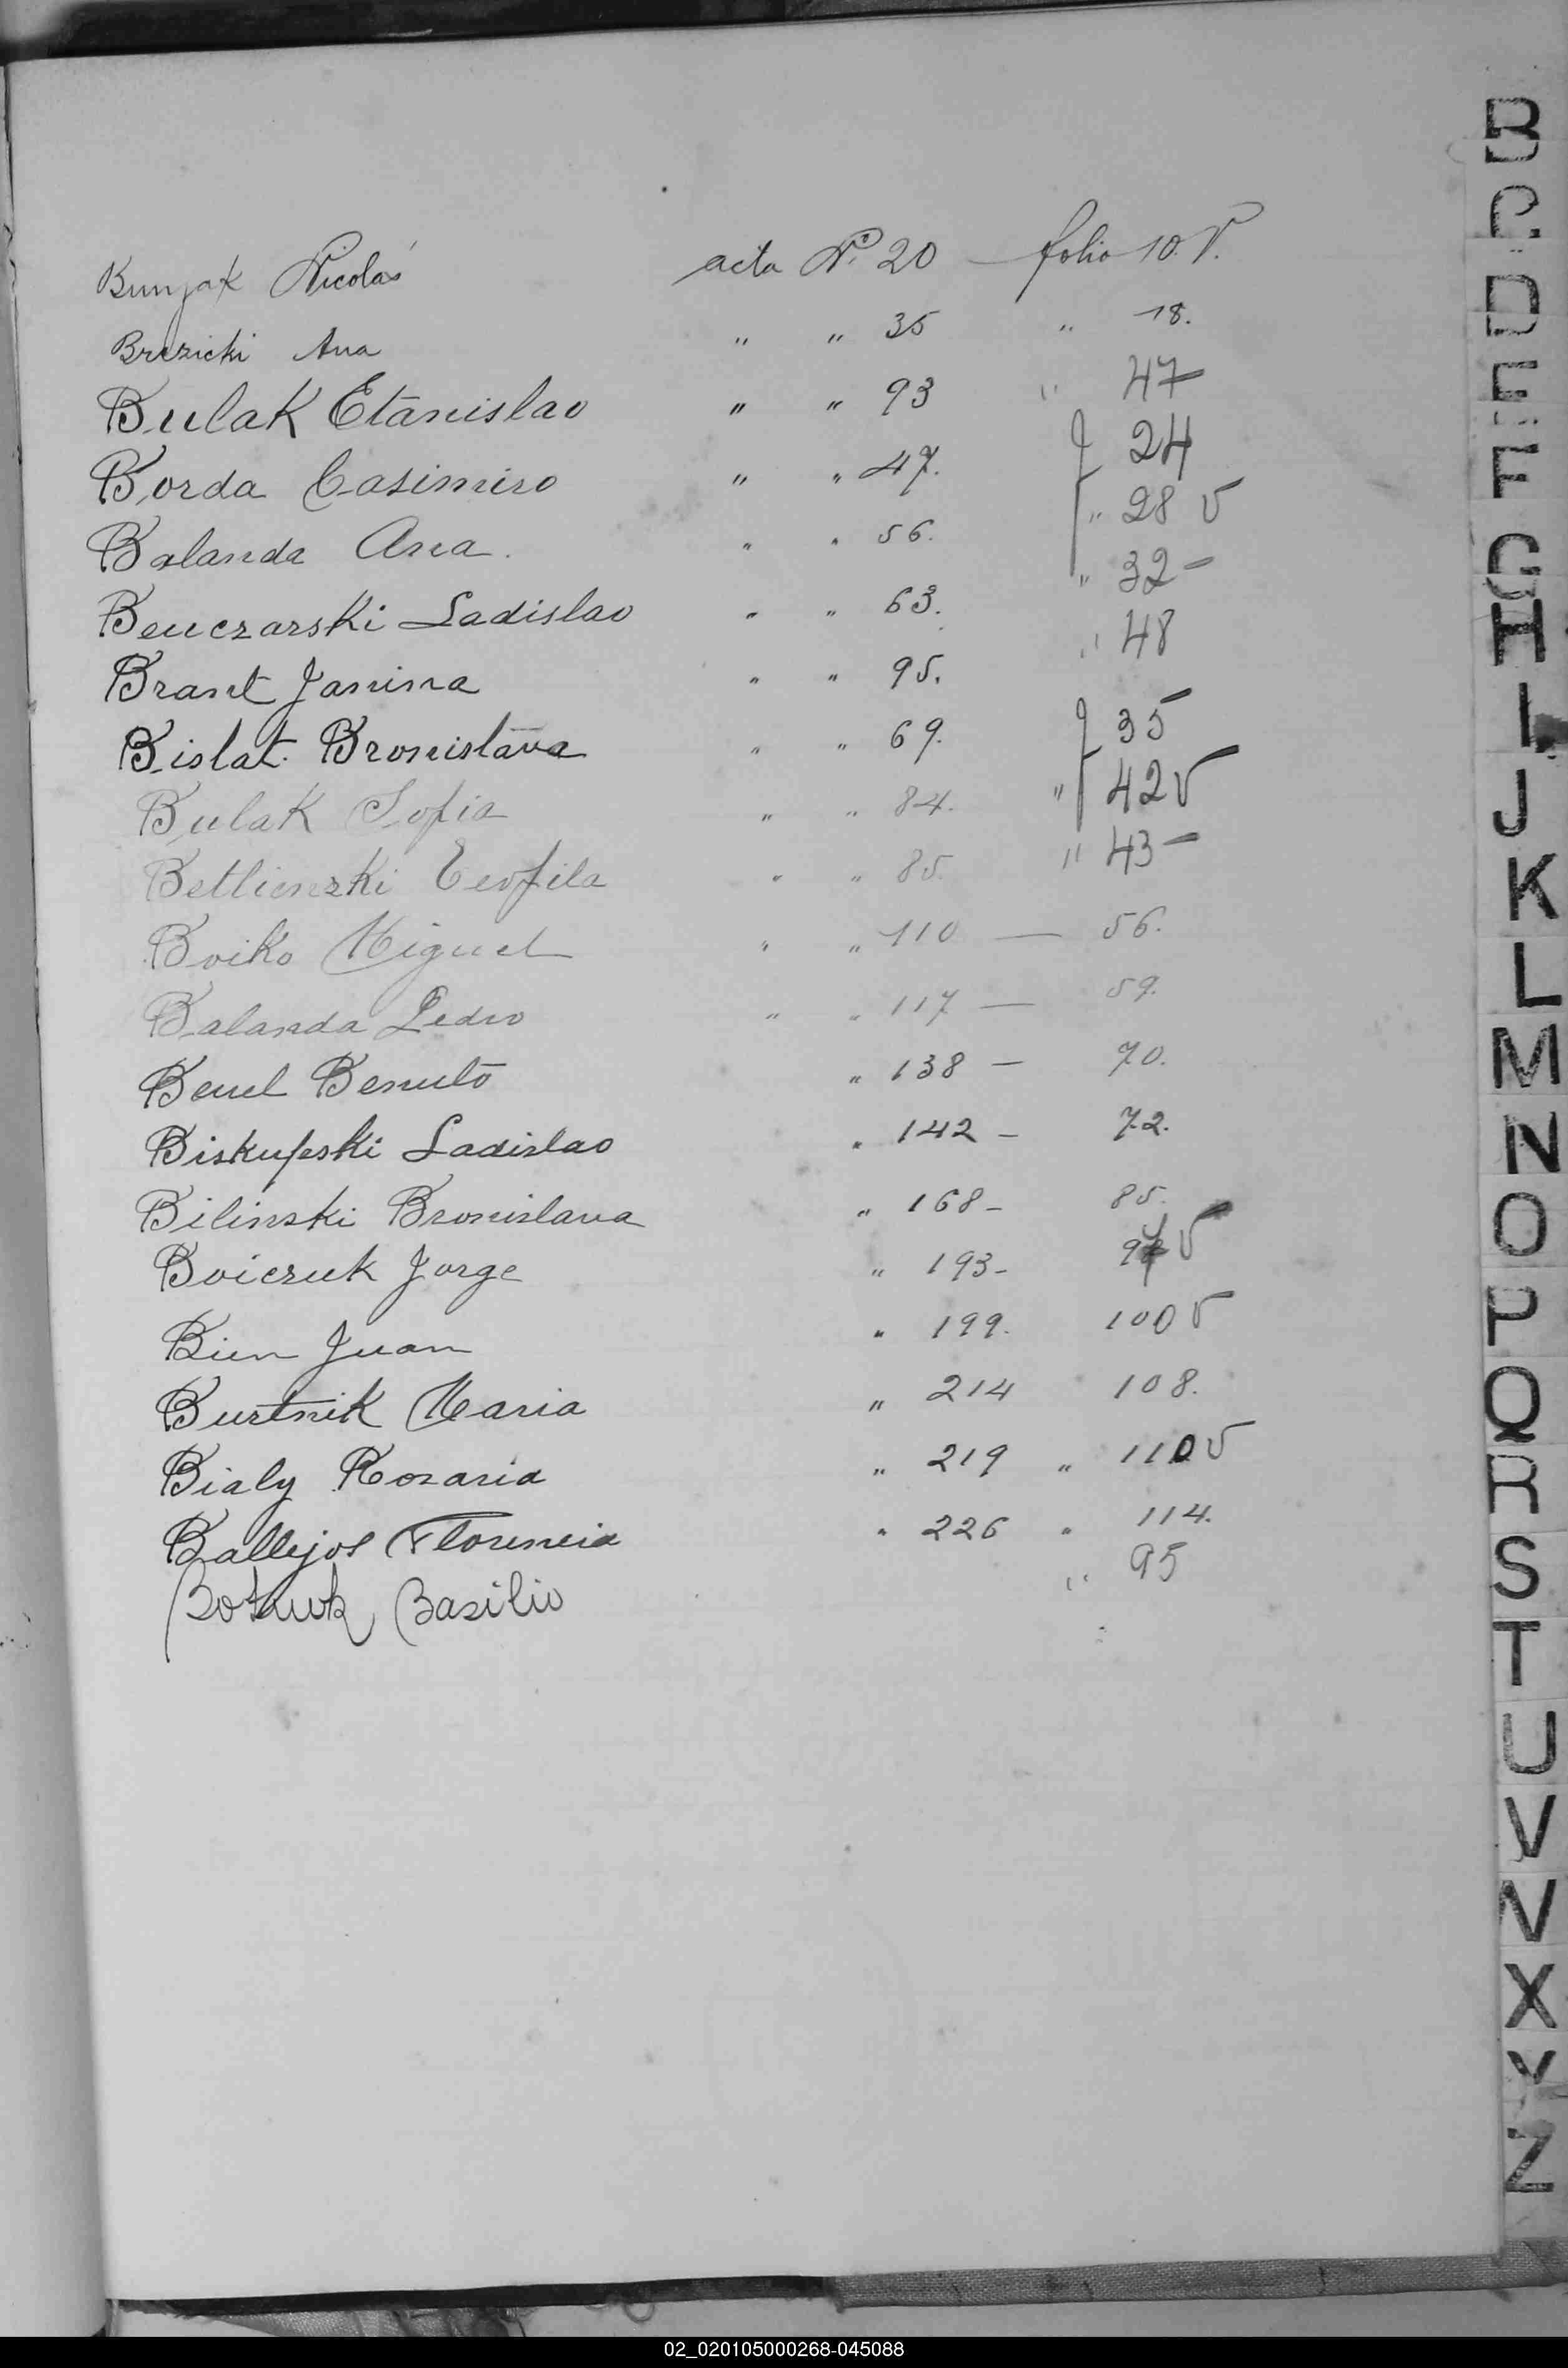 Bunjak Nicolás acta Nº 20 — folio 10 V.
Brezicki Ana " " 35 " 18.
Bulak Etanislao " " 93 " 47
Borda Casimiro " " 47. f 24
Balanda Ana. " " 56. " 28 v
Benczarski Ladislao " " 63. " 32 -
Brant Janina " " 95. " 48
Bislat. Bronislava " " 69. f 35
Bulak Sofia " " 84. " 42 v
Betlienski Teofila " " 85. " 43 -
Boiko Miguel " " 110 — 56.
Balanda Pedro " " 117 — 59.
Benuto " 138 - 70.
Biskupski Ladislao " 142 - 72.
Bilinski Bronislava " 168 - 85.
Boiczuk Jorge " 193 - 97 v
Bien Juan " 199. 100 v
Burtnik Maria " 214 108.
Bialy Rosaria " 219 " 110 v
Ballejos Florencia " 226 " 114.
Basilio " 95
B
C
D
E
F
G
H
I
J
K
L
M
N
O
P
Q
R
S
T
U
V
W
X
Y
Z
02_020105000268-045088